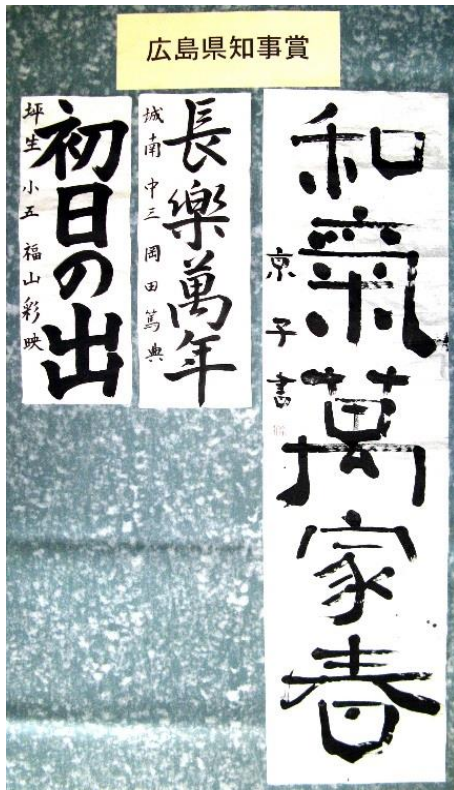 広島県知事賞
和氣萬家春
京子書
長樂萬年
城南中三 岡田篤典
初日の出
坪生小五 福山彩映